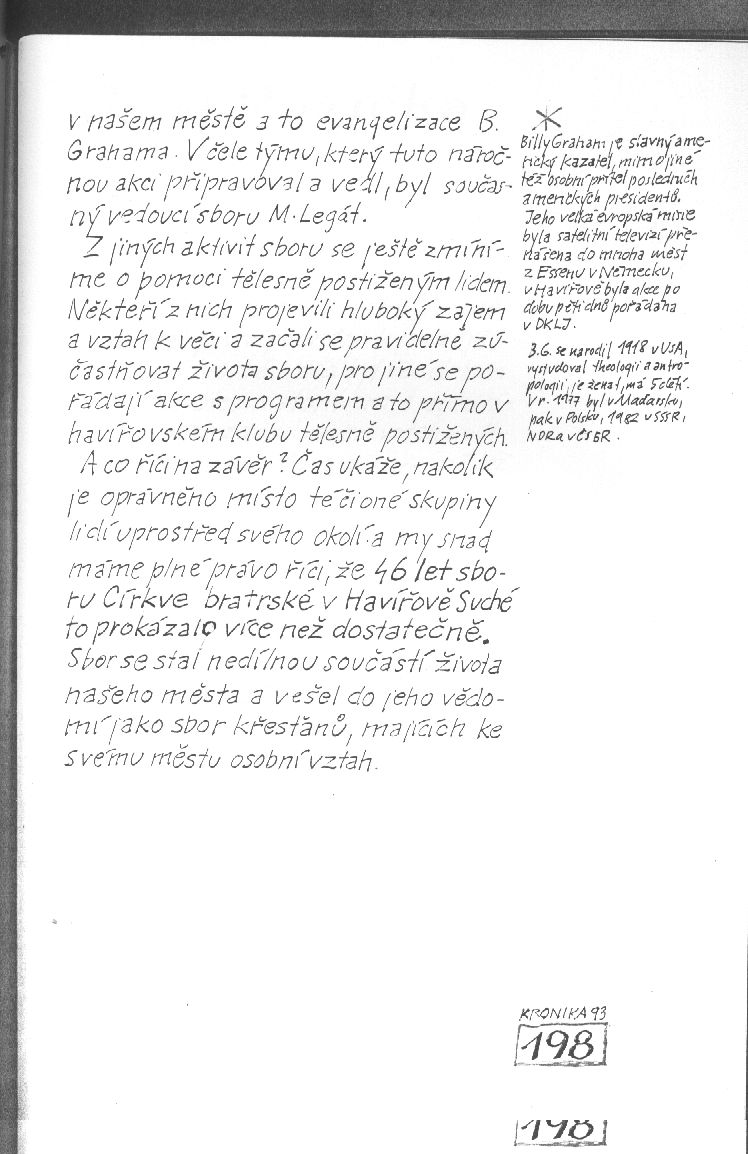 v našem městě a to evangelizace B.
Grahama. V čele týmu, který tuto nároč-
nou akci připravoval a vedl, byl součas-
ný vedoucí sboru M. Legát.
Z jiných aktivit sboru se ještě zmíní-
me o pomoci tělesně postiženým lidem.
Někteří z nich projevili hluboký zájem
a vztah k věci a začali se pravidelně zú-
častňovat života sboru, pro jiné se po-
řádají akce s programem a to přímo v
havířovském klubu tělesně postižených.
A co říci na závěr? Čas ukáže, nakolik
je oprávněno místo té čioné skupiny
lidí uprostřed svého okolí a my snad
máme plné právo říci, že 46 let sbo-
ru Církve bratrské v Havířově Suché
to prokázalo více než dostatečně.
Sbor se stal nedílnou součástí života
našeho města a vešel do jeho vědo-
mí jako sbor křesťanů, majících ke
svému městu osobní vztah.
*
Billy Graham je slavný ame-
rický kazatel, mimo jiné
též osobní přítel posledních
amerických presidentů.
Jeho velká evropská
byla satelitní televizí pře-
nášena do mnoha měst
z Essenu v Německu,
v Havířově byla akce po
dobu pěti dnů pořádána
v DKLJ.
3.6. se narodil 1918 v USA,
vystudoval theologii a antro-
pologii, je ženat, má 5 dětí.
V r. 1977 byl v Maďarsku,
pak v Polsku, 1982 v SSSR,
NDR a v ČSSR.
KRONIKA 93
198
198